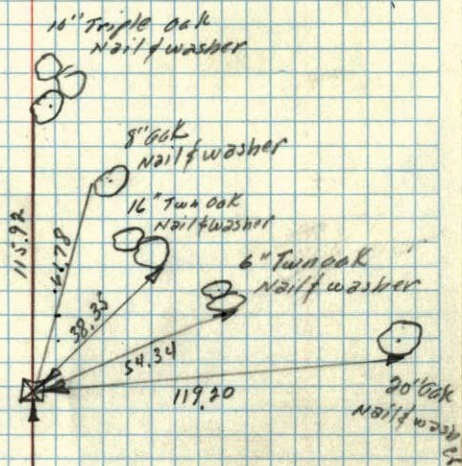 10" Triple Oak
Nail & washer
8" Oak
Nail & washer
16" Twn oak
Nail & washer
6" Twn oak
Nail & washer
115.92
38.35
54.34
119.20
20" Oak
Nail & wash
er